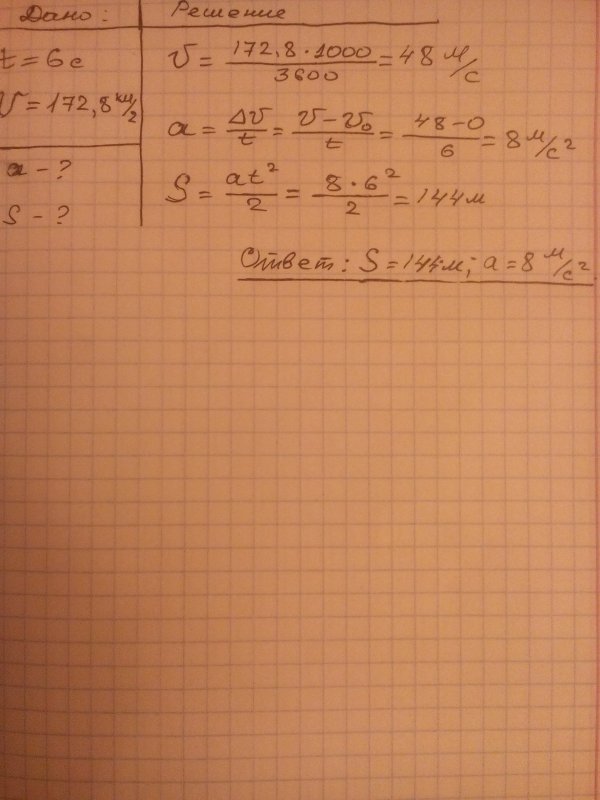 Дано:
t = 6 с
V = 172,8 км/ч
a - ?
S - ?
Решение
v = 172,8 · 1000 / 3600 = 48 м/с
a = Δv / t = v - v₀ / t = 48 - 0 / 6 = 8 м/с²
S = at² / 2 = 8 · 6² / 2 = 144 м
Ответ: S = 144 м; a = 8 м/с².